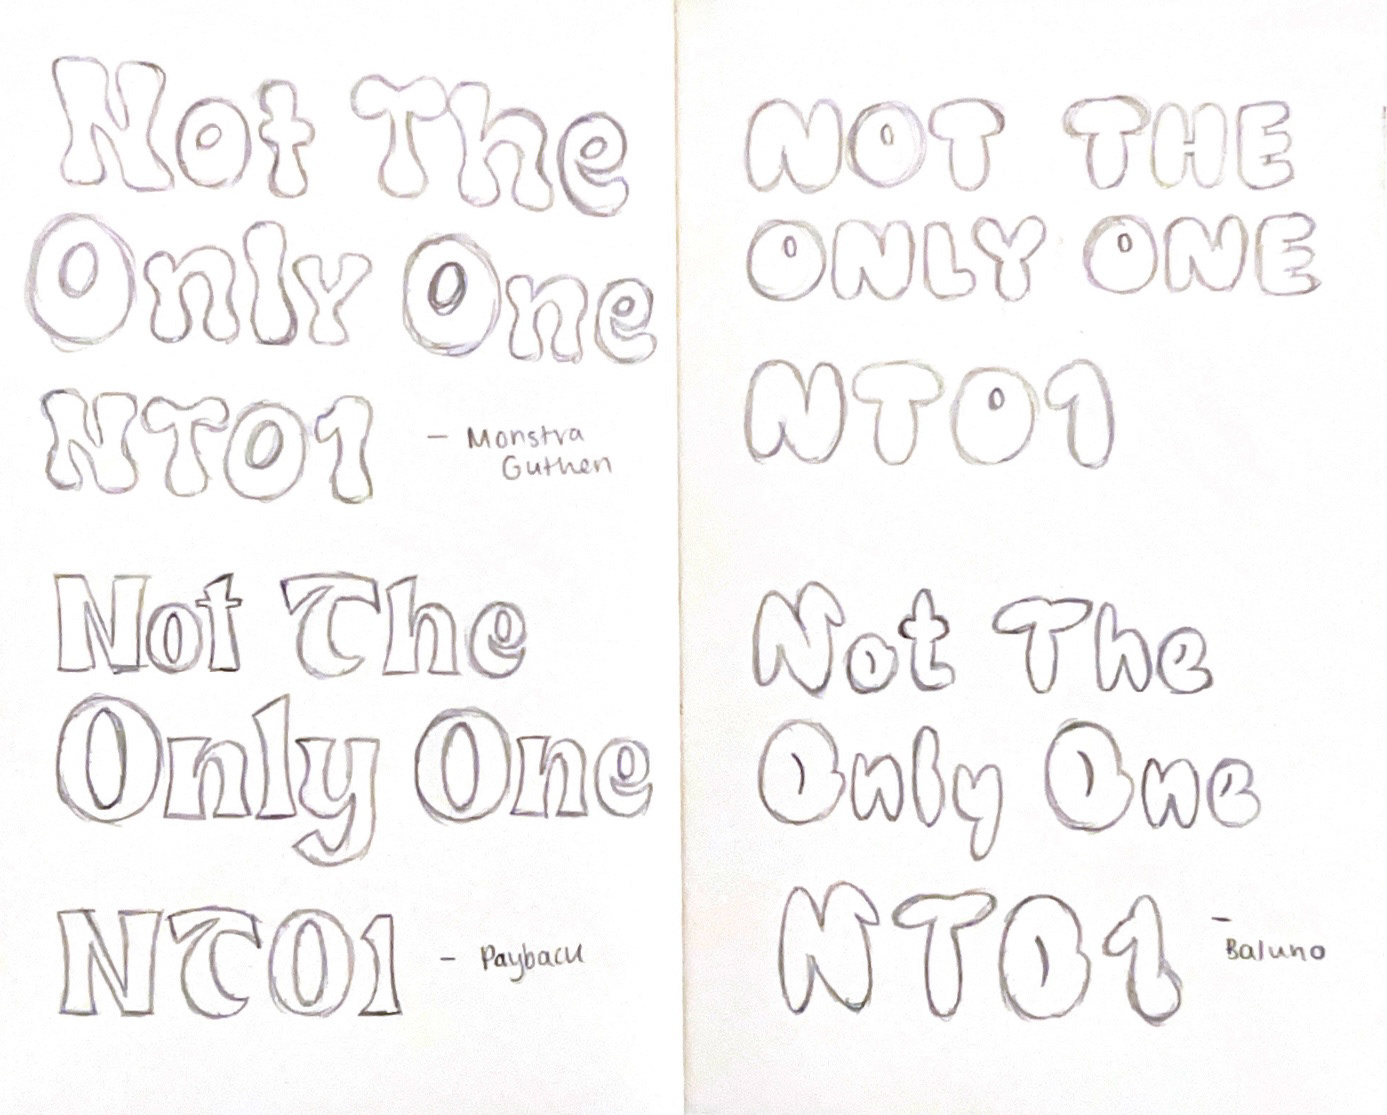 Not The
Only One
NTO1
- Monstra
Guthen
Not The
Only One
NTO1
- Payback
NOT THE
ONLY ONE
NTO1
Not The
Only One
NTO1
-
Baluno